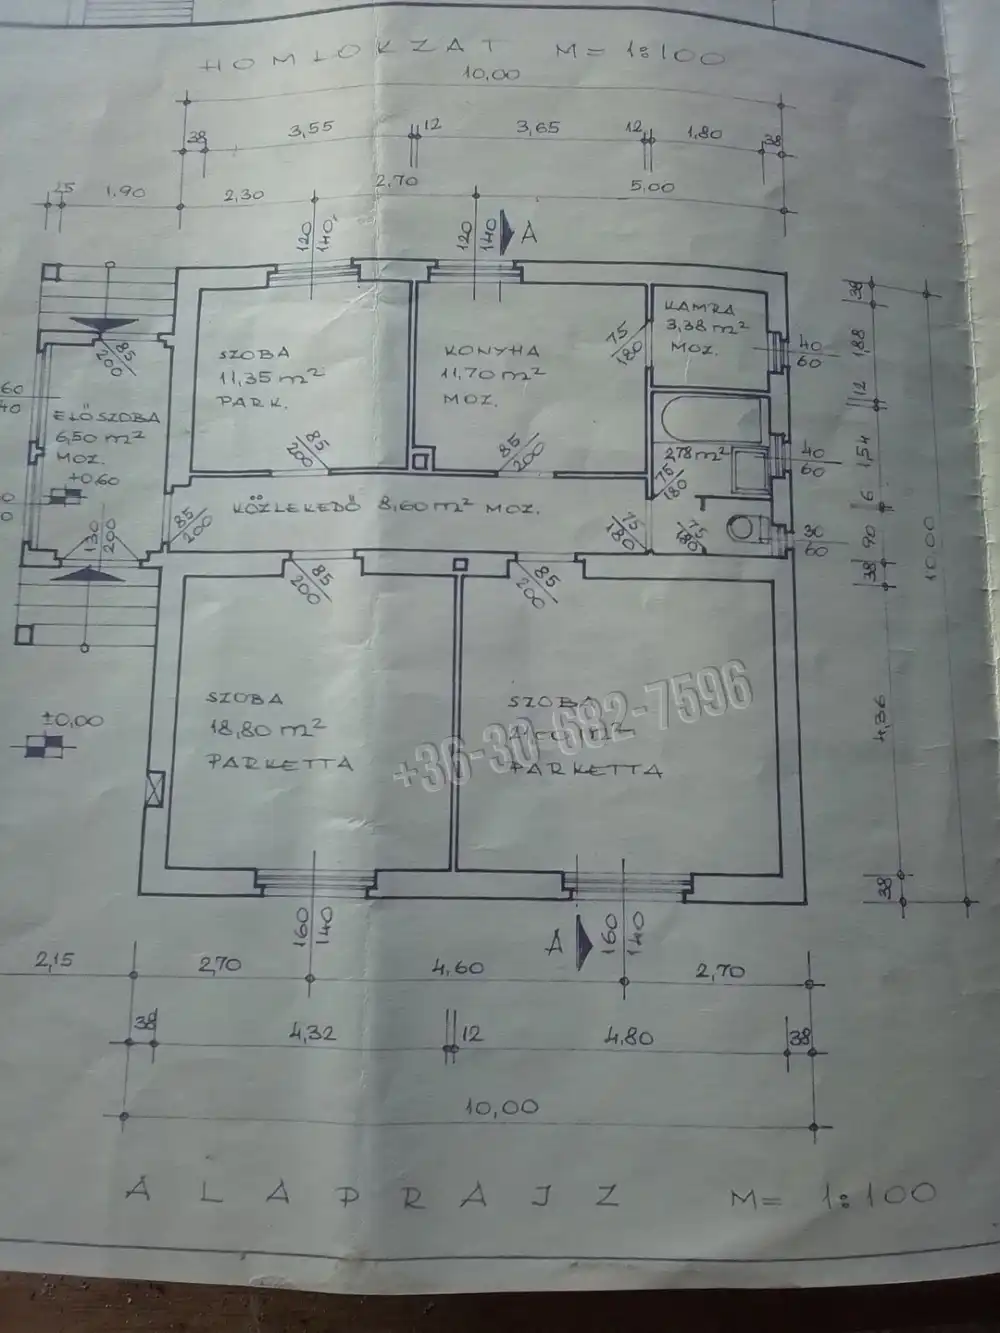 HOMLOKZAT M= 1:100
10,00
38 3,55 12 3,65 12 1,80 38
15 1,90 2,30 2,70 5,00
120 140 120 140 A
KAMRA
3,38 m²
MOZ.
75 180
40 60
38
1,88
SZOBA
11,35 m²
PARK.
KONYHA
11,70 m²
MOZ.
85 200
60 40
ELŐSZOBA
6,50 m²
MOZ.
+0,60
12
2,78 m²
40 60
1,54
85 200
85 200
75 180
KÖZLEKEDŐ 8,60 m² MOZ.
6
130 200
85 200
75 180
75 180
30 60
90
10.00
38
85 200
85 200
±0,00
SZOBA
18,80 m²
PARKETTA
SZOBA
PARKETTA
+36-30-682-7596
4,36
38
160 140
A
160 140
2,15 2,70 4,60 2,70
38 4,32 12 4,80 38
10,00
ALAPRAJZ M= 1:100